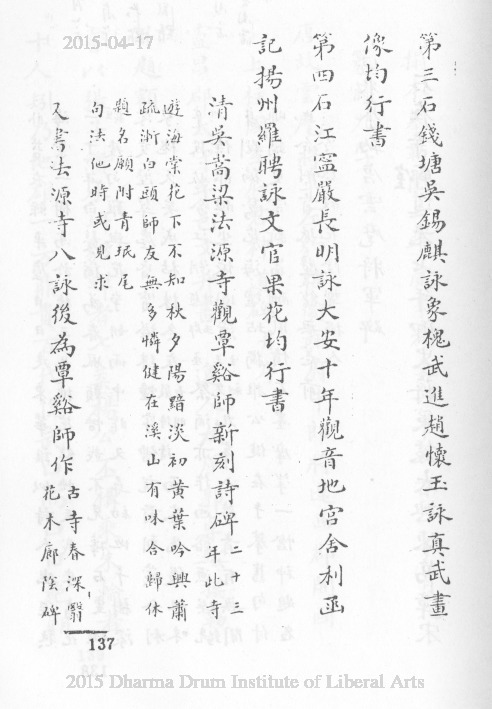 2015-04-17
第三石錢塘吳錫麒詠象槐武進趙懷玉詠真武畫
像均行書
第四石江寍嚴長明詠大安十年觀音地宮舍利函
記揚州羅聘詠文官果花均行書
清吳嵩梁法源寺觀覃谿師新刻詩碑二十三
年此寺
遊海棠花下不知秋夕陽黯淡初黃葉吟興蕭
疏漸白頭師友無多憐健在溪山有味合歸休
題名願附青珉尾
句法他時或見求
又書法源寺八詠後為覃谿師作古寺春深翳
花木廊陰碑
137
2015 Dharma Drum Institute of Liberal Arts